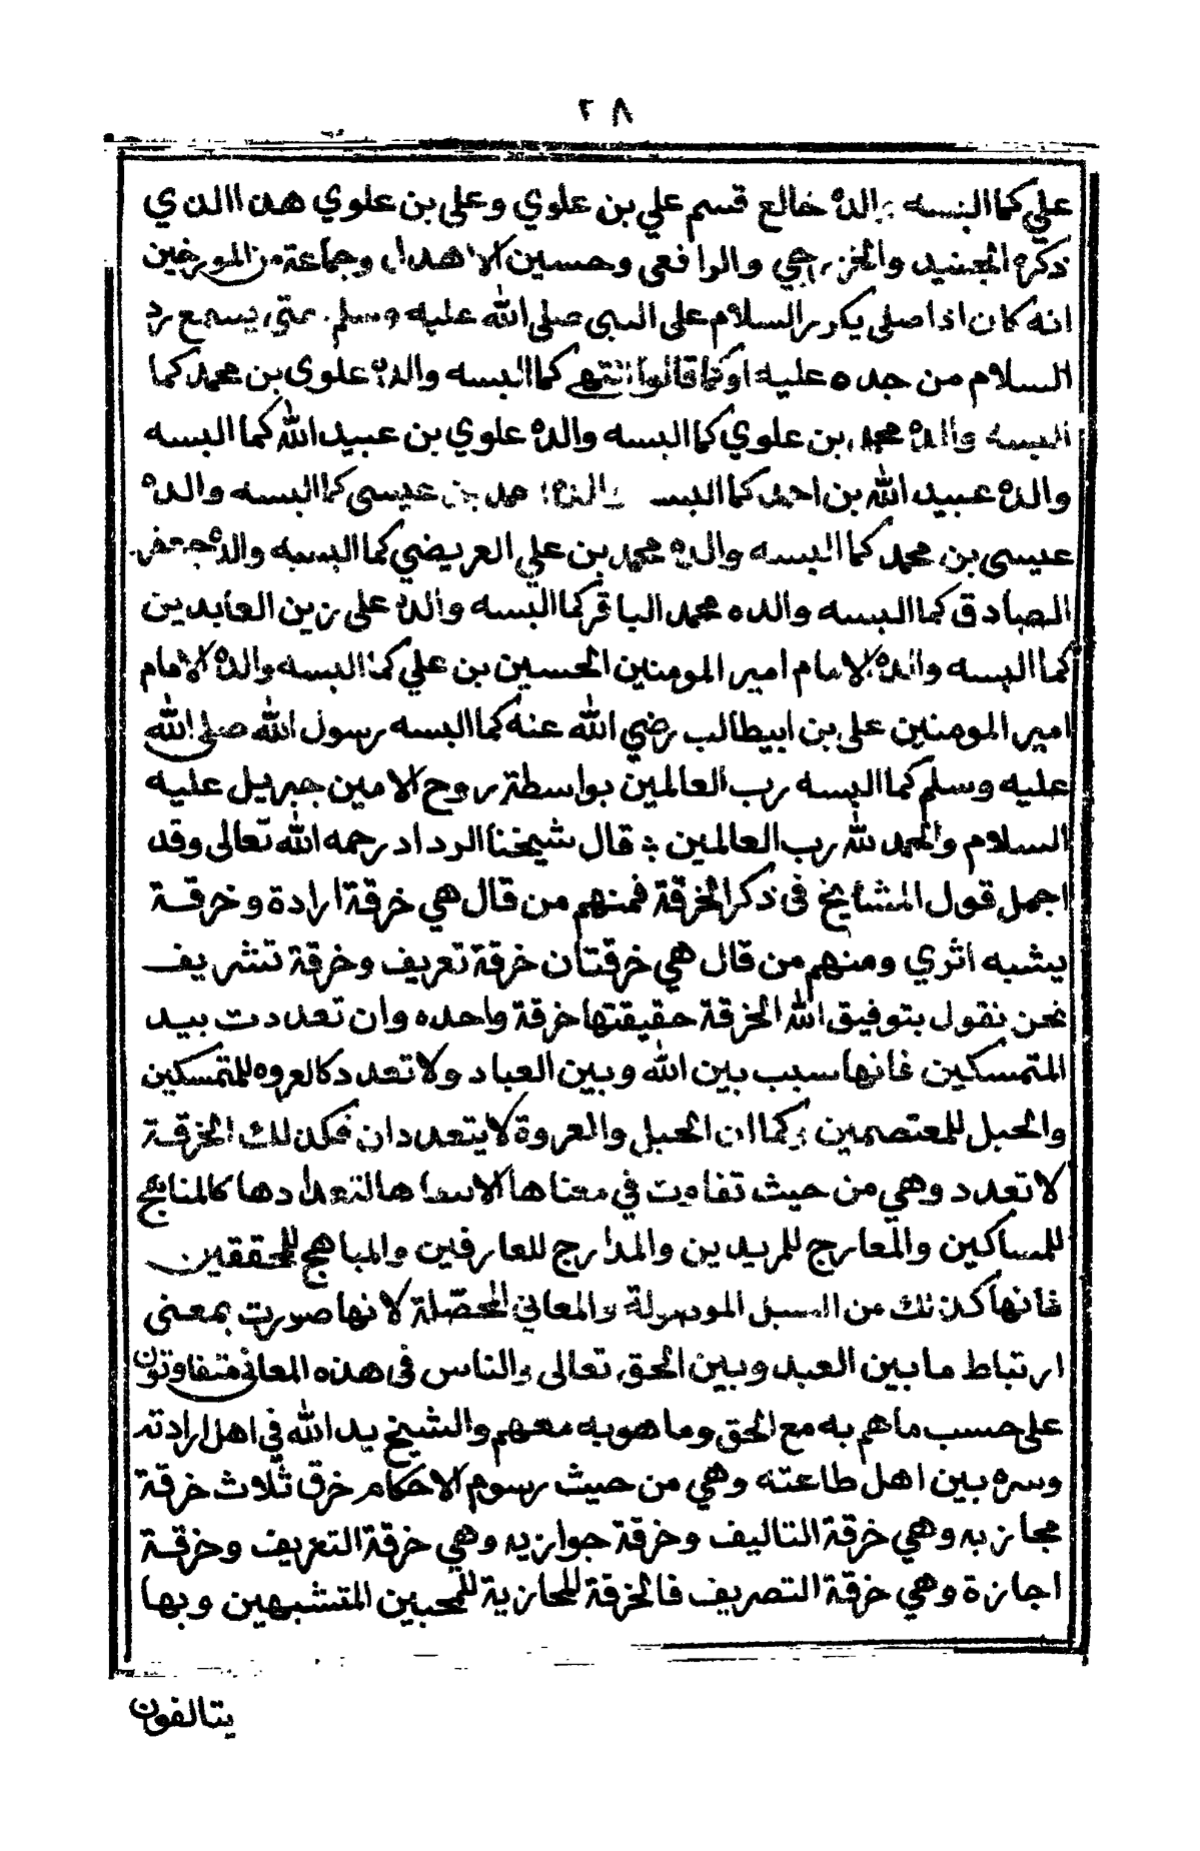 ٢٨
علي كما البسه والده خالع قسم علي بن علوي وعلي بن علوي هذا الذي
ذكره الجنيد والخزرجي والرافعي وحسين الاهدل وجماعة من المورخين
انه كان اذا صلى يكرر السلام على النبي صلى الله عليه وسلم متى يسمع رد
السلام من جده عليه او كما قالوا انتهى كما البسه والده علوي بن محمد كما
البسه والده محمد بن علوي كما البسه والده علوي بن عبيد الله كما البسه
والده عبيد الله بن احمد كما البسه والده احمد بن عيسى كما البسه والده
عيسى بن محمد كما البسه والده محمد بن علي العريضي كما البسه والده جعفر
الصادق كما البسه والده محمد الباقر كما البسه والده علي زين العابدين
كما البسه والده الامام امير المومنين الحسين بن علي كما البسه والده الامام
امير المومنين علي بن ابيطالب رضي الله عنه كما البسه رسول الله صلى الله
عليه وسلم كما البسه رب العالمين بواسطة روح الامين جبريل عليه
السلام والحمد لله رب العالمين قال شيخنا الرداد رحمه الله تعالى وقد
اجمل قول المشايخ في ذكر الخرقة فمنهم من قال هي خرقة ارادة وخرقة
يشبه اثري ومنهم من قال هي خرقتان خرقة تعريف وخرقة تشريف
نحن نقول بتوفيق الله الخرقة حقيقتها خرقة واحده وان تعددت بيد
المتمسكين فانها سبب بين الله وبين العباد ولا تعدد كالعروه للمتمسكين
والحبل للمعتصمين وكما ان الحبل والعروة لا يتعددان فكذلك الخرقة
لا تعدد وهي من حيث تفاوت في معناها الاسما ها لتعدادها كالمناهج
للساكين والمعارج للمريدين والمدارج للعارفين والمباهج للمحققين
فانها كذلك من السبل الموصولة والمعاني المحصّلة لانها صورت بمعنى
ارتباط ما بين العبد وبين الحق تعالى والناس في هذه المعاني متفاوتون
على حسب ما هم به مع الحق وما هو به معهم والشيخ يد الله في اهل ارادته
وسره بين اهل طاعته وهي من حيث رسوم الاحكام خرق ثلاث خرقة
مجازيه وهي خرقة التاليف وخرقة جوازيه وهي خرقة التعريف وخرقة
اجازة وهي خرقة التصريف فالخرقة المجازية للمحبين المتشبهين وبها
يتالفون